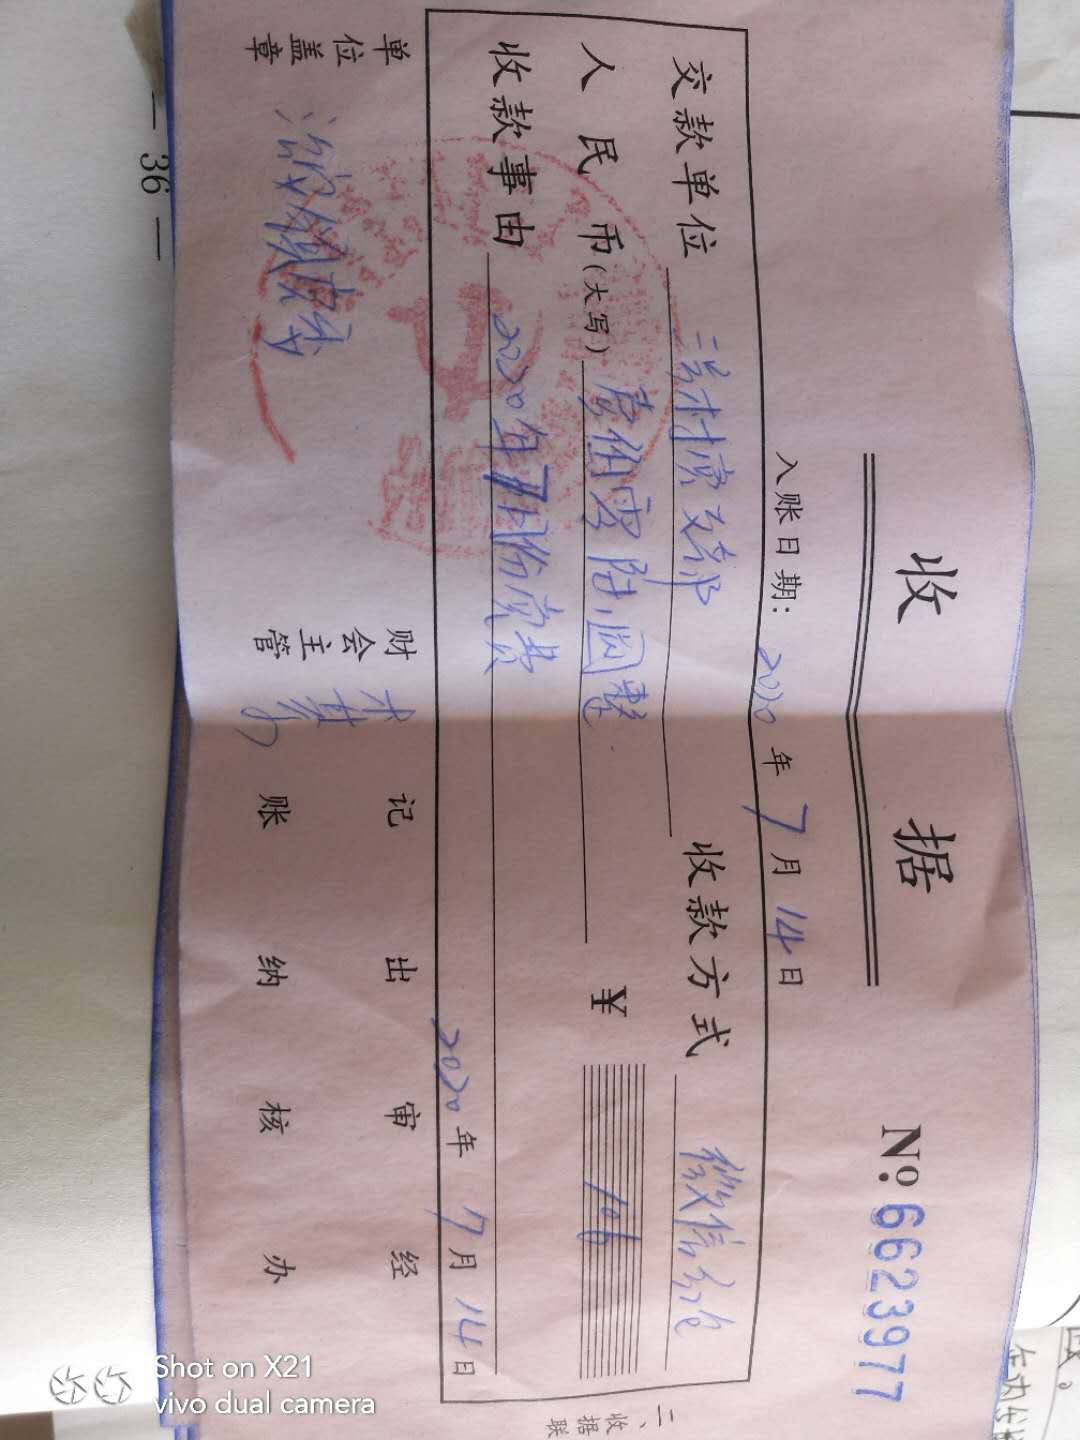 收 据
№: 6623977
入账日期: 2020 年 7 月 14 日
交款单位 收款方式 微信
人民币(大写) 壹佰零陆圆整 ¥ 106
收款事由 2020年7月份党费
2020 年 7 月 14 日
单位盖章 财会主管 记账 出纳 审核 经办
二、收据联
— 36 —
Shot on X21
vivo dual camera